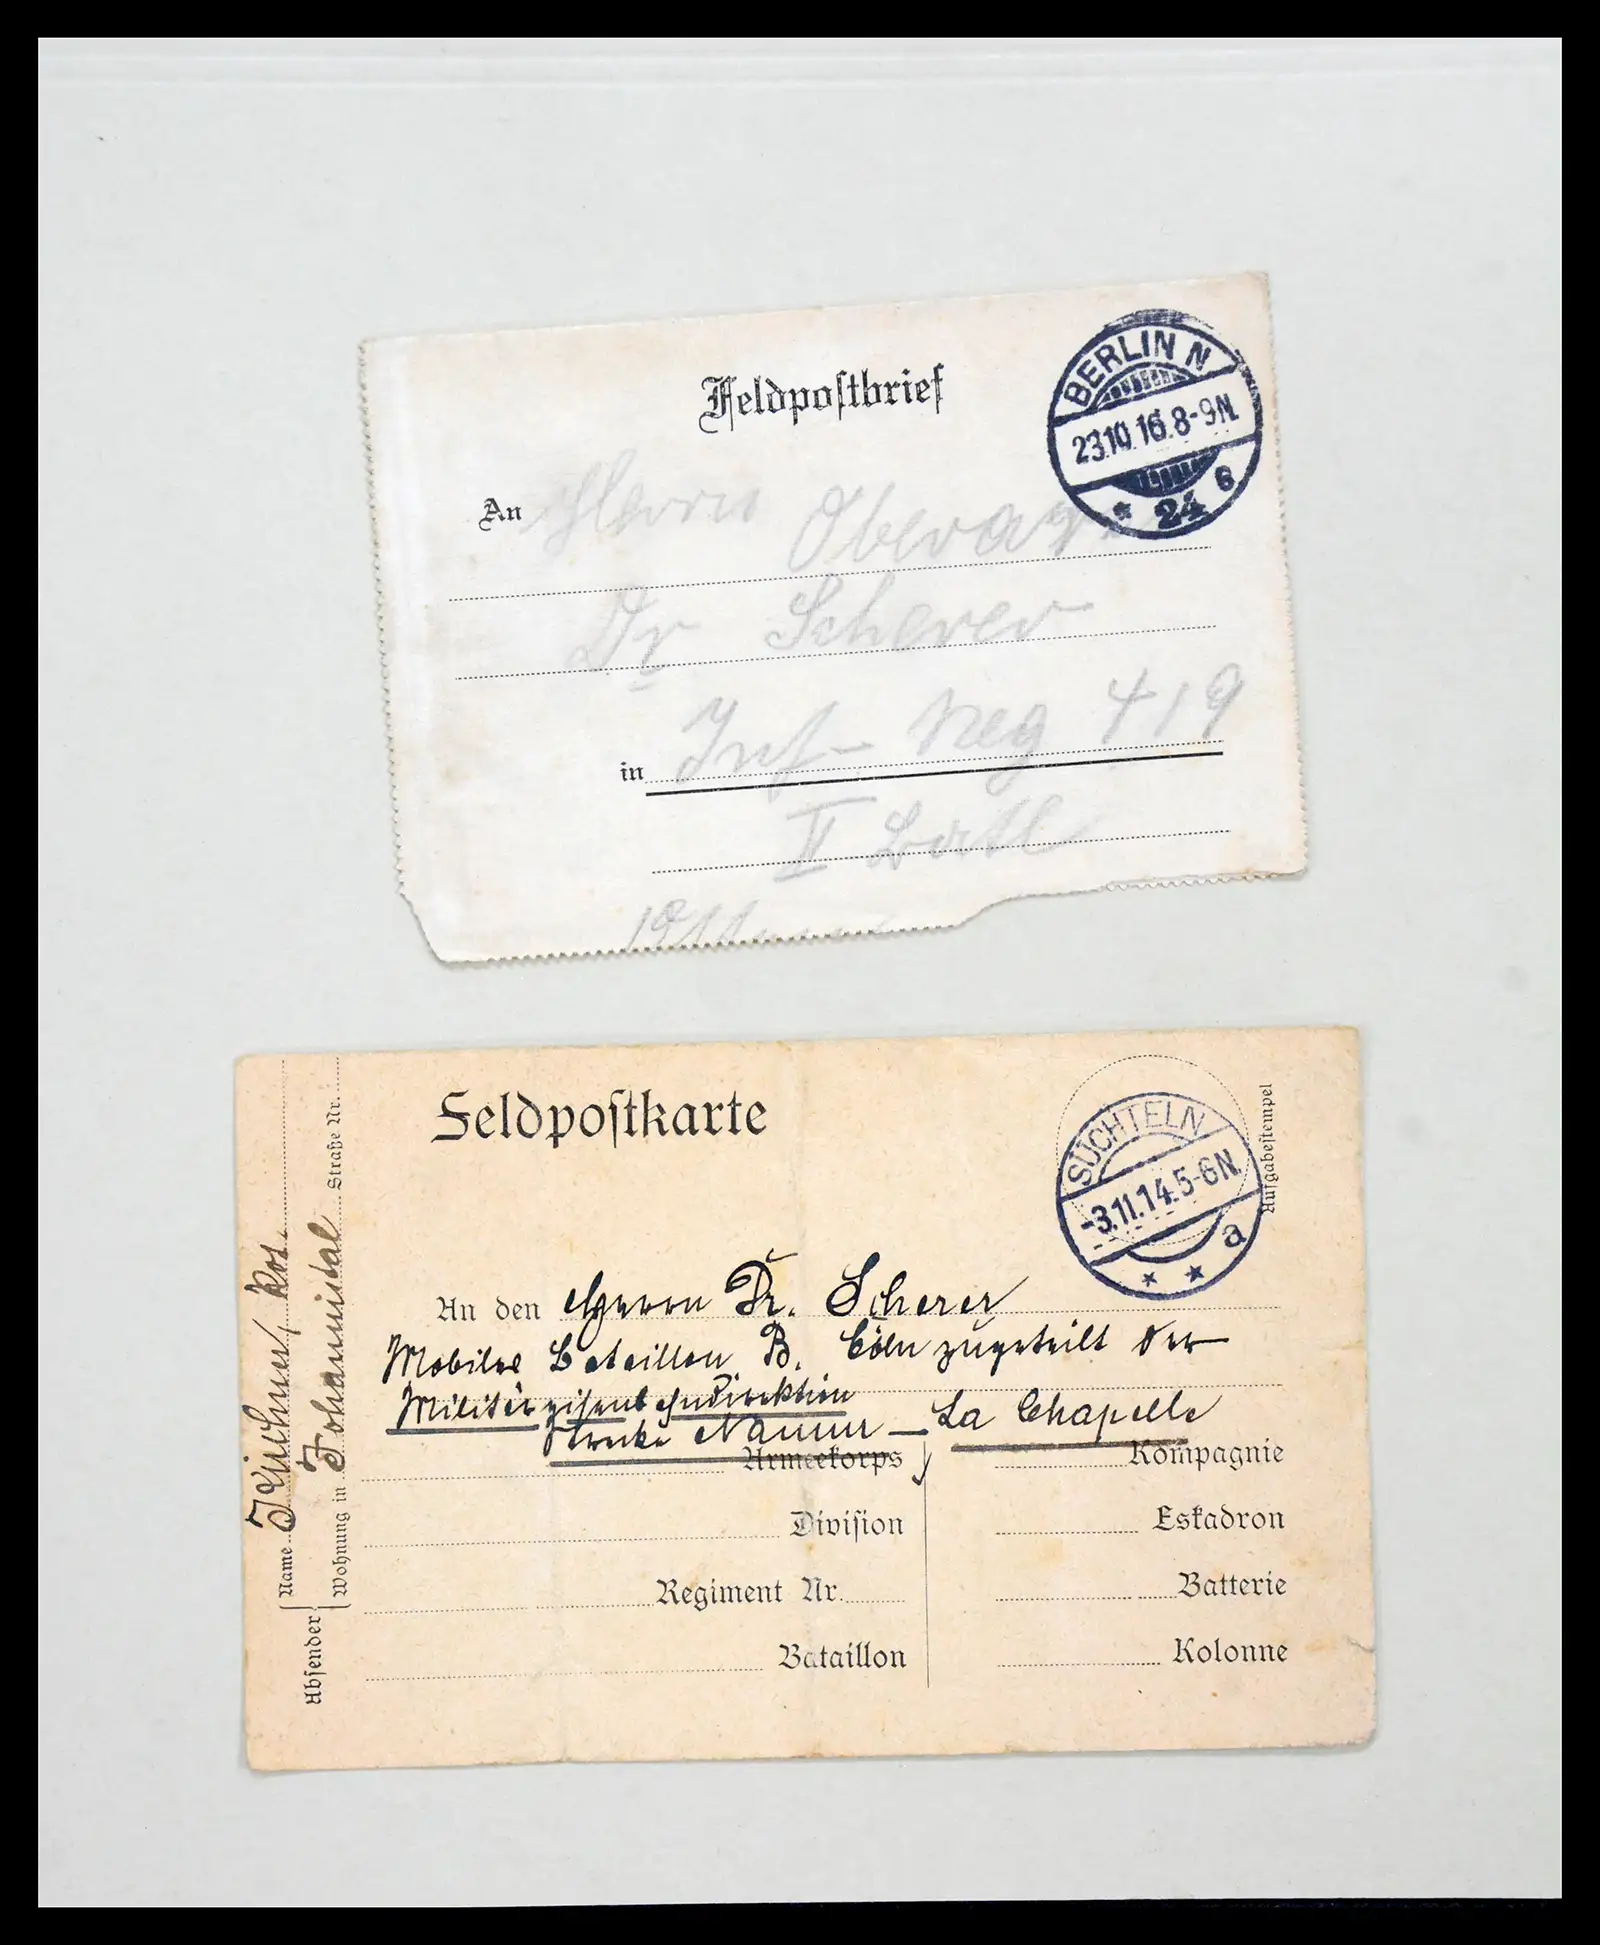 Feldpostbrief
BERLIN N
23.10.16.8-9N.
* 24 s
An Herrn
Dr Scherer
in Inf- Reg 419
II Batl
Feldpostkarte
SÜCHTELN
-3.11.14.5-6N.
* * a
Aufgabestempel
An den Herrn Dr. Scherer
Mobiles Bataillon B. Cöln zugeteilt der
Militäreisenbahndirektion
Strecke Namur – La Chapelle
Armeekorps
Kompagnie
Division
Eskadron
Regiment Nr.
Batterie
Bataillon
Kolonne
Absender
Name
Wohnung in Johannistal Straße Nr.